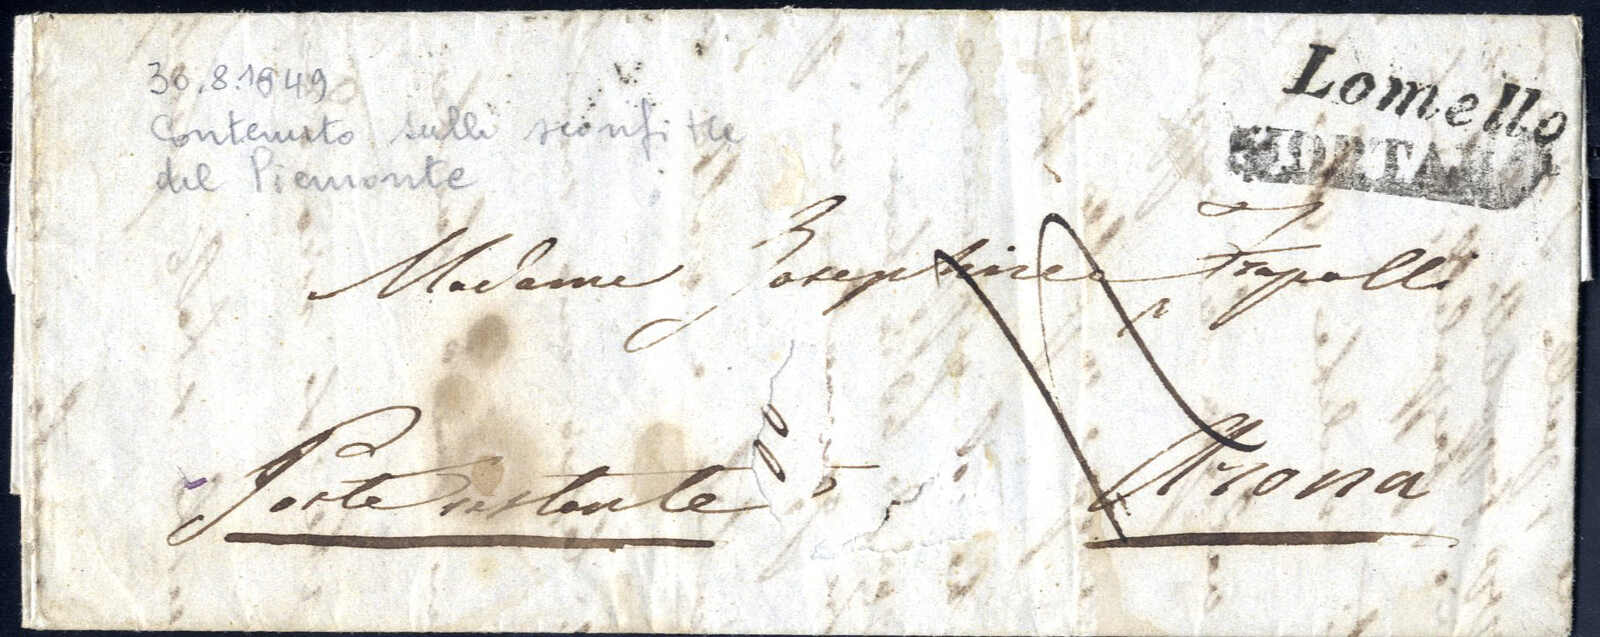 30.8.1849
Contenuto sulle sconfitte
del Piemonte
Lomello
MORTARA
Madame Josephine Frapolli
Poste restante
Arona